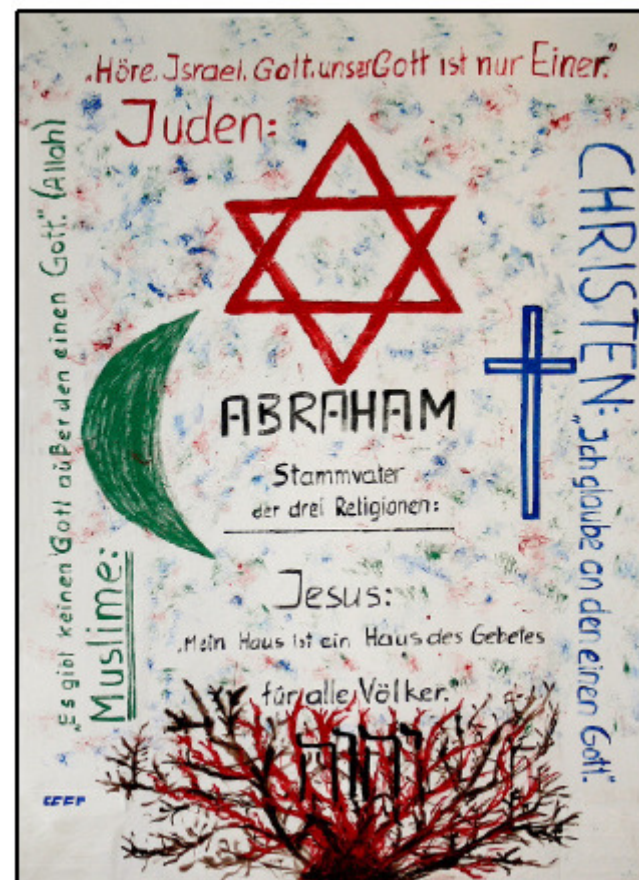 „Höre, Israel, Gott, unser Gott ist nur Einer.“
Juden:
„Es gibt keinen Gott außer den einen Gott.“ (Allah)
Muslime:
CHRISTEN: „Ich glaube an den einen Gott.“
ABRAHAM
Stammvater
der drei Religionen:
Jesus:
„Mein Haus ist ein Haus des Gebetes
für alle Völker.“
יהוה